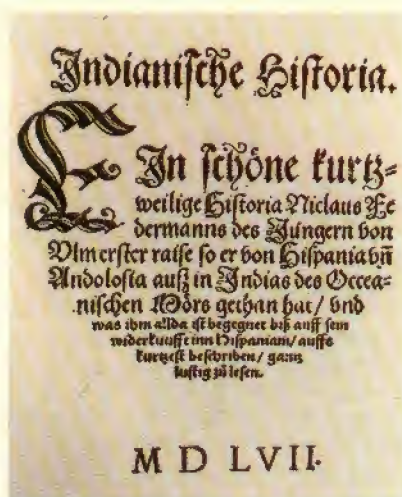 Indianische Historia.
EIn schöne kurtz-
weilige Historia Niclaus Fe
dermanns des Jüngern von
Vlm erster raise so er von Hispania vñ
Andolosia auß in Indias des Occea-
nischen Mörs gethan hat / vnd
was ihm allda ist begegnet biß auff sein
widerkunfft inn Hispaniam / auffs
kurtzest beschriben / gantz
lustig zů lesen.
M D LVII.